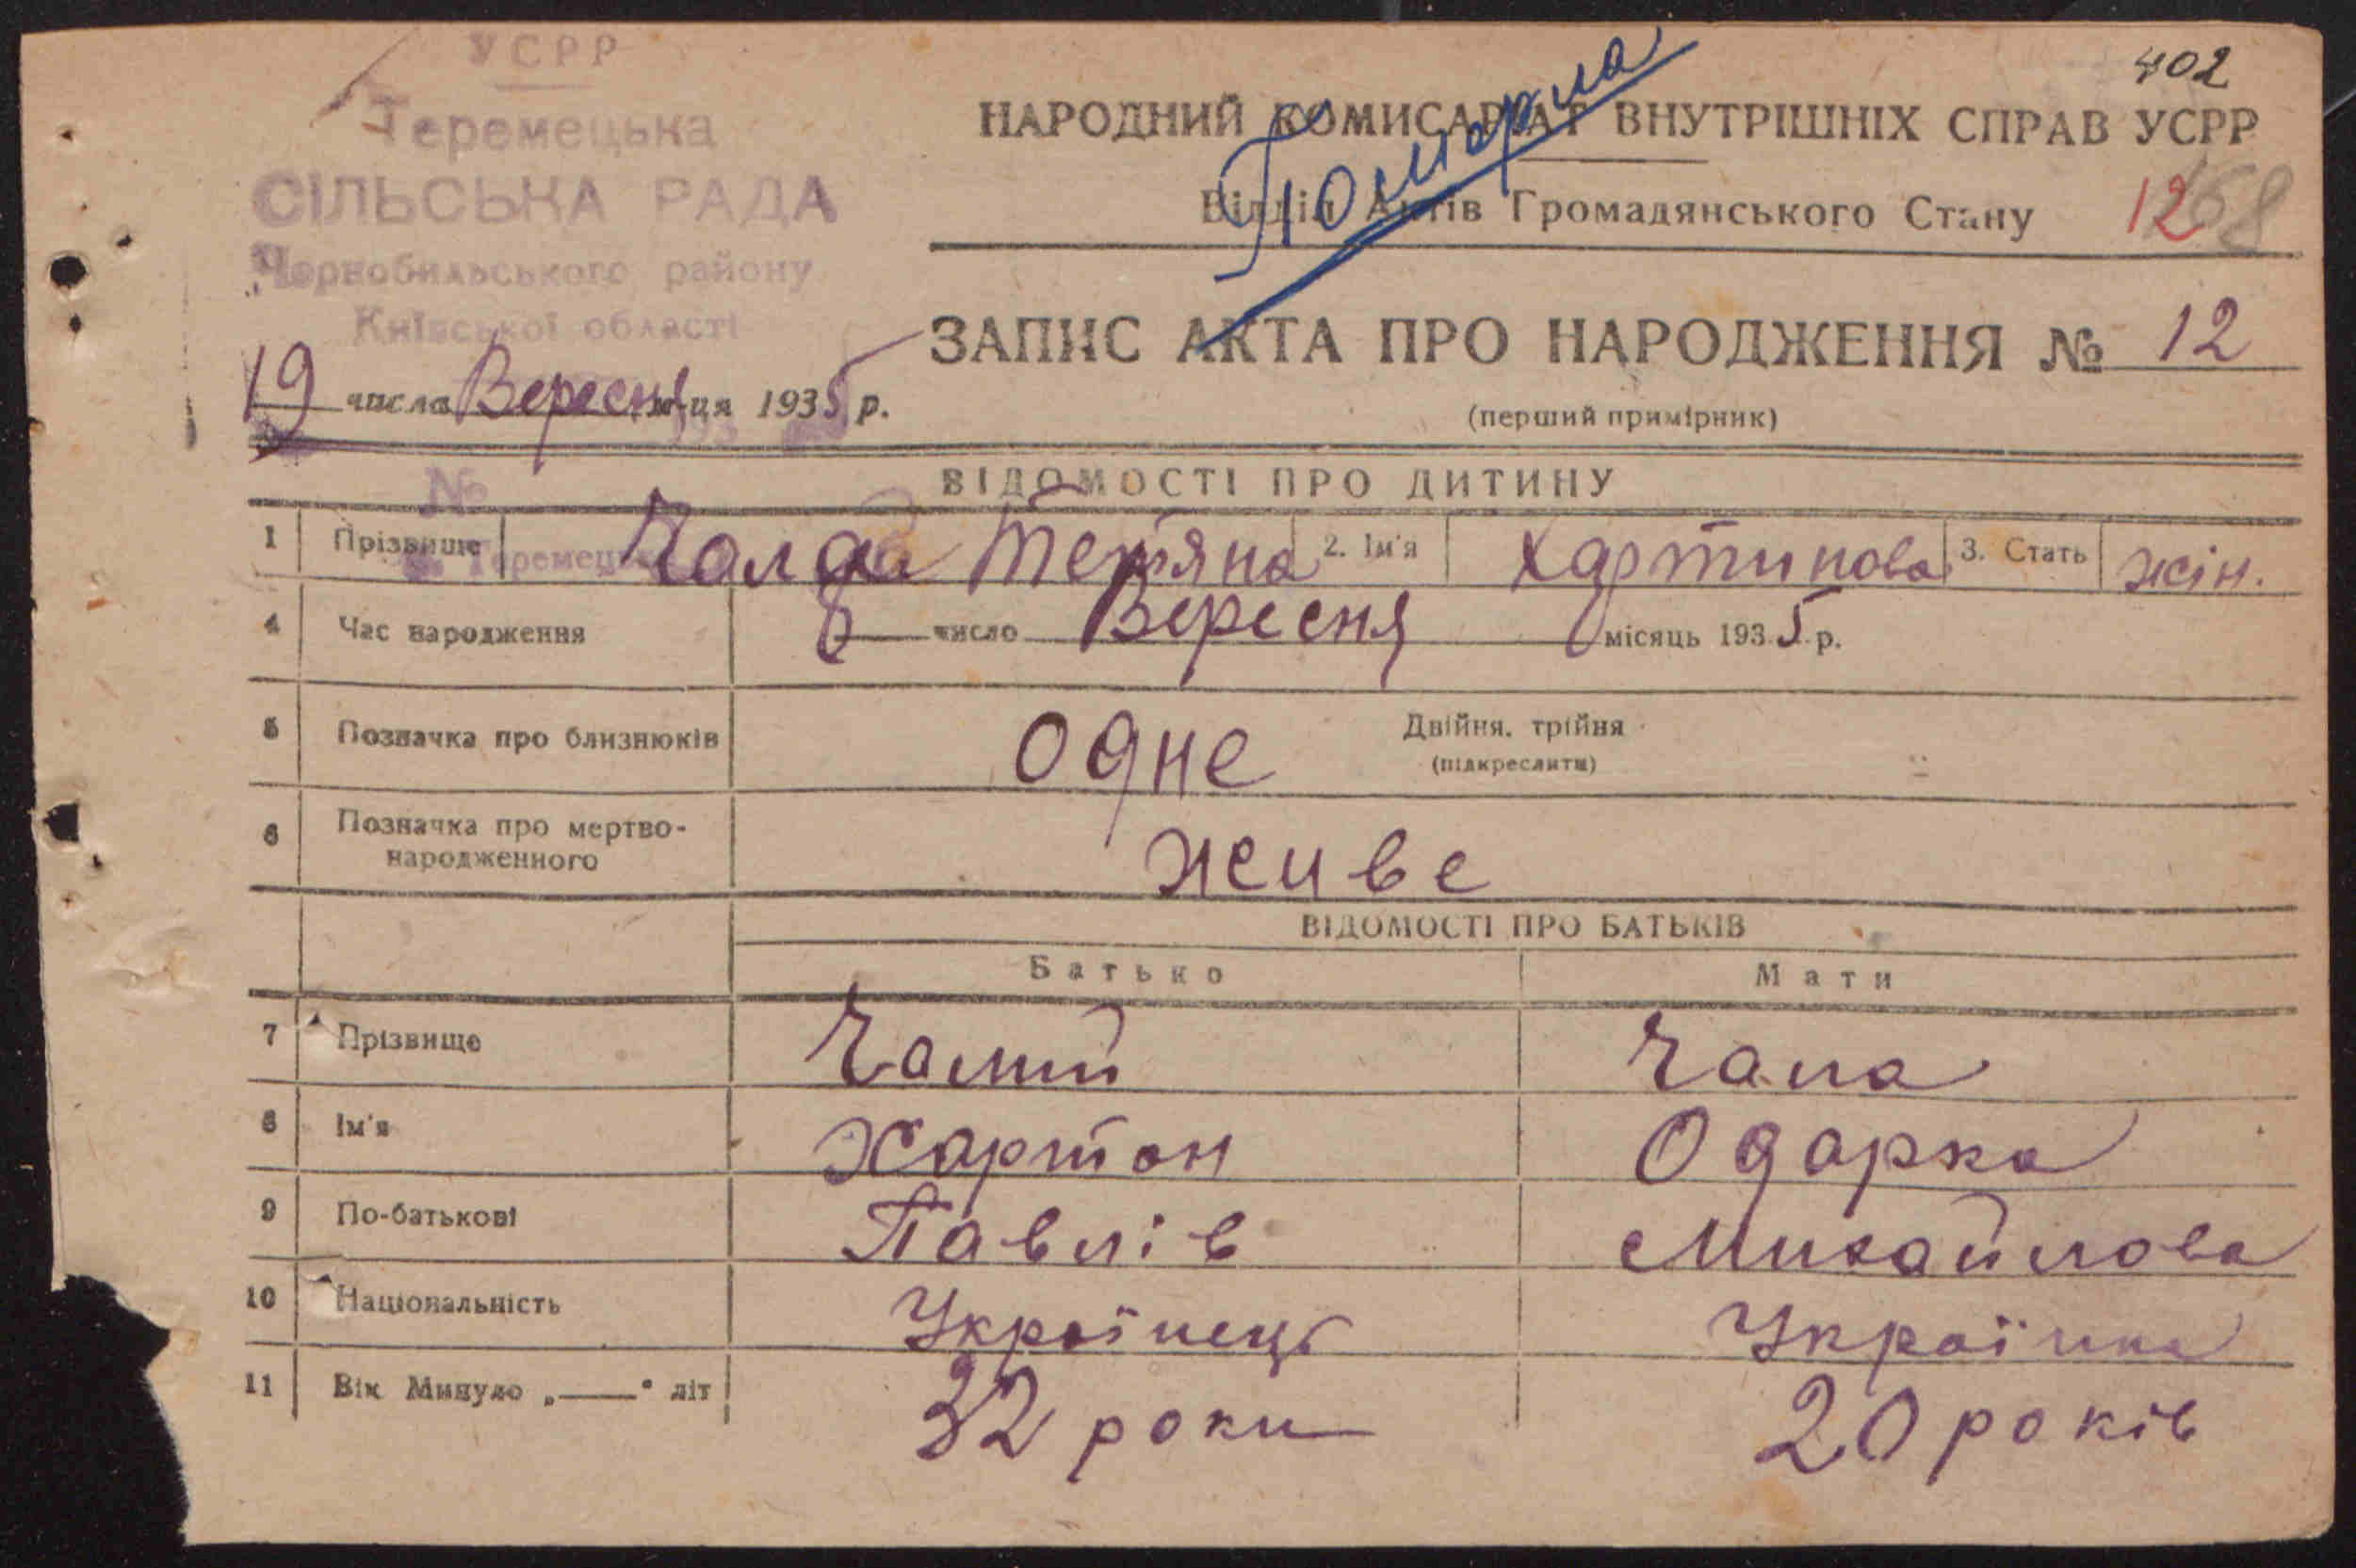 УСРР
Теремецька
СІЛЬСЬКА РАДА
Чорнобильського району
Київської області
19 числа Вересня м-ця 1935 р.
№
402
НАРОДНИЙ КОМИСАРІАТ ВНУТРІШНІХ СПРАВ УСРР
Померла
Відділ Актів Громадянського Стану
12 68
ЗАПИС АКТА ПРО НАРОДЖЕННЯ № 12
(перший примірник)
ВІДОМОСТІ ПРО ДИТИНУ
1 Прізвище Тетяна 2. Ім'я Хартинова 3. Стать жін.
4 Час народження число Вересня місяць 1935 р.
5 Позначка про близнюків одне Двійня, трійня
(підкреслити)
6 Позначка про мертво-
народженного живе
ВІДОМОСТІ ПРО БАТЬКІВ
Батько Мати
7 Прізвище Чалий Чала
8 Ім'я Хартон Одарка
9 По-батькові Павлів Михайлова
10 Національність Українець Українка
11 Вік Минуло „——“ літ 32 роки 20 років